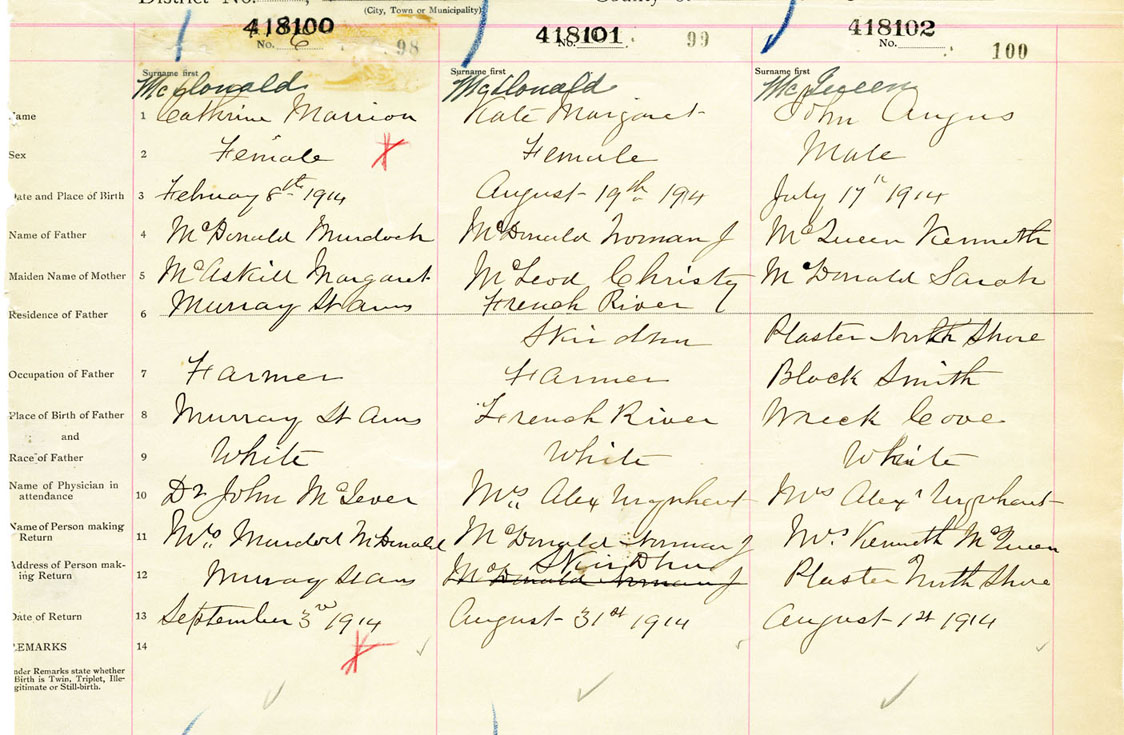 District No. County of
(City, Town or Municipality)
418100 418101 418102
No. 6 98 No. 101 99 No. 100
Surname first Surname first Surname first
McDonald McDonald McQueen
Name 1 Catherine Marrion Kate Margaret John Angus
Sex 2 Female Female Male
Date and Place of Birth 3 February 8th 1914 August 19th 1914 July 17th 1914
Name of Father 4 McDonald Murdock McDonald Norman J McQueen Kenneth
Maiden Name of Mother 5 McAskill Margaret McLeod Christy McDonald Sarah
Residence of Father 6 Murray St Anns French River
Skir dhu Plaster North Shore
Occupation of Father 7 Farmer Farmer Black Smith
Place of Birth of Father 8 Murray St Anns French River Wreck Cove
and
Race of Father 9 White White White
Name of Physician in attendance 10 Dr John McIever Mrs Alex Urquhart Mrs Alex Urquhart
Name of Person making Return 11 Mrs Murdock McDonald McDonald Norman J Mrs Kenneth McQueen
Skir Dhu
Address of Person making Return 12 Murray St Anns McDonald Norman J Plaster North Shore
Date of Return 13 September 3rd 1914 August 31st 1914 August 1st 1914
REMARKS 14
Under Remarks state whether
Birth is Twin, Triplet, Ille-
gitimate or Still-birth.